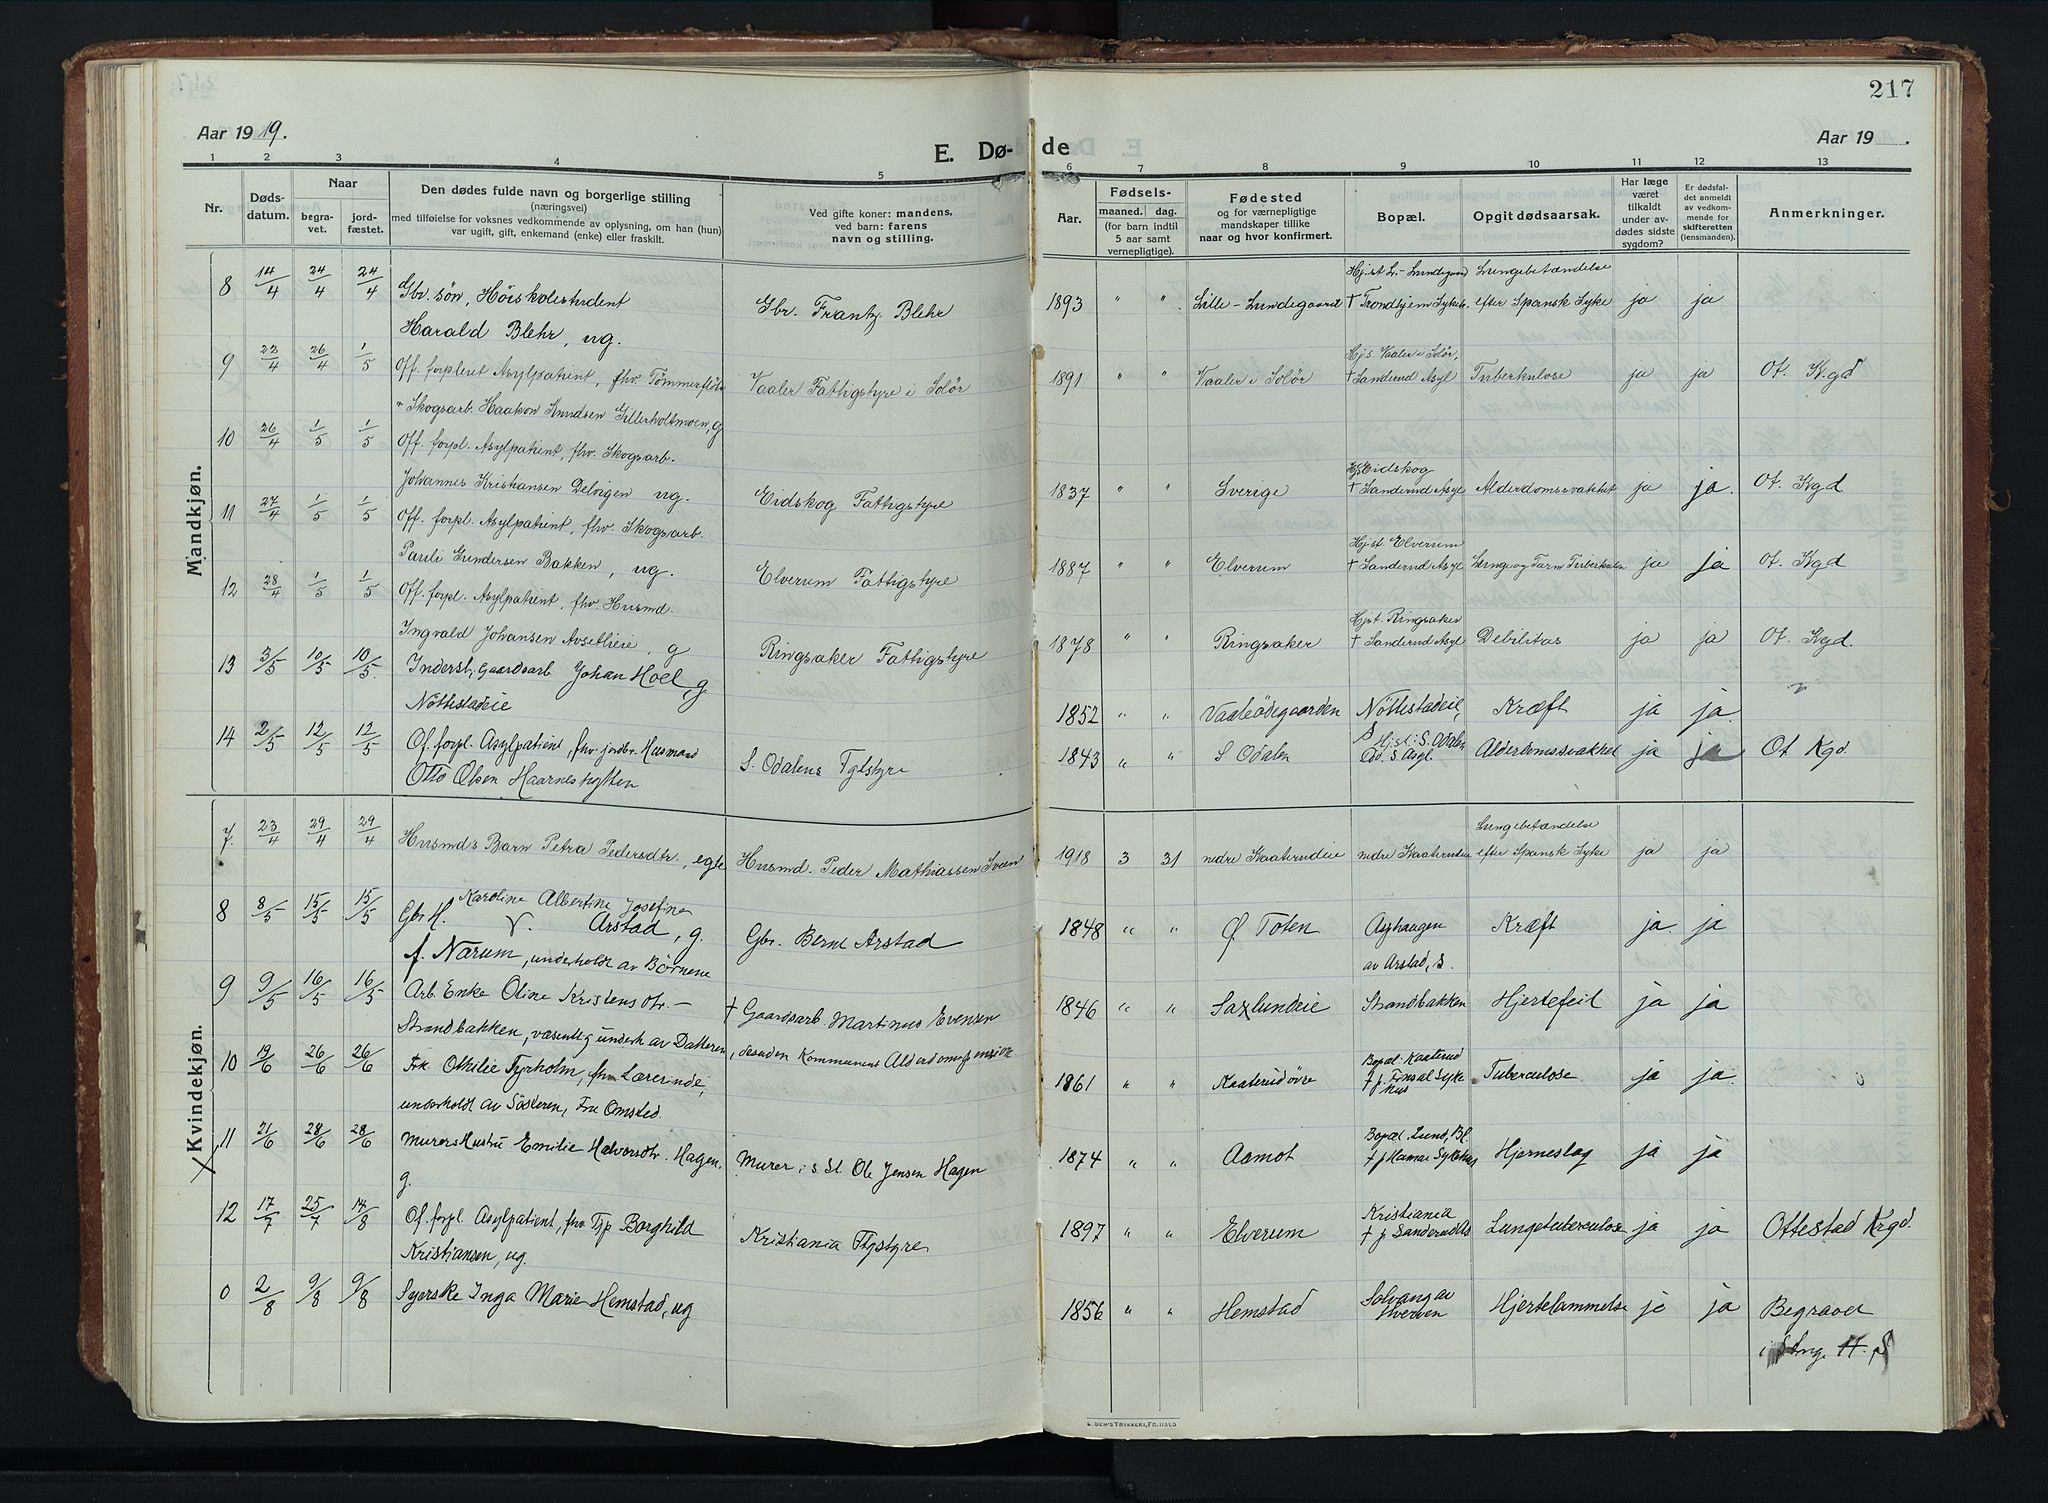 217
Aar 1919.
E. Dø-
de
Aar 19 .
1 2 3 4 5 6 7 8 9 10 11 12 13
Nr.
Døds-
datum.
Naar
begra-
vet.
jord-
fæstet.
Den dødes fulde navn og borgerlige stilling
(næringsvei)
med tilføielse for voksnes vedkommende av oplysning, om han (hun)
var ugift, gift, enkemand (enke) eller fraskilt.
Ved gifte koner: mandens.
ved barn: farens
navn og stilling.
Aar.
Fødsels-
maaned. dag.
(for barn indtil
5 aar samt
vernepligtige).
Fødested
og for værnepligtige
mandskaper tillike
naar og hvor konfirmert.
Bopæl.
Opgit dødsaarsak.
Har læge
været
tilkaldt
under av-
dødes sidste
sygdom?
Er dødsfal-
det anmeldt
av vedkom-
mende for
skifteretten
(lensmanden).
Anmerkninger.
Mandkjøn.
8 14/4 24/4 24/4 Gbr. søn, Høiskolestudent
Harald Blehr, ug.
Gbr. Frantz Blehr
1893 " " Lille-Lundegaard
Hjst L.-Lundegaard
† Trondhjem Sykeh.
Lungebetændelse
efter Spansk Syke
ja ja
9 22/4 26/4 1/5 Off. forpleret Asylpatient, fhv. Tømmerfløter
" Skogsarb. Haakon Knudsen Gillerholtmoen, g
Vaaler Fattigstyre i Solør
1891 " " Vaaler i Solør
Hjs. Vaaler i Solør,
† Sanderud Asyl
Tuberkulose ja ja Ot. Kgd
10 26/4 1/5 1/5 Off. forpl. Asylpatient, fhv. Skogsarb.
Johannes Kristiansen Delvigen ug.
Eidskog Fattigstyre
1837 " " Sverige
Hjs Eidskog
† Sanderud Asyl
Alderdomssvakhet ja ja. Ot. Kgd
11 27/4 1/5 1/5 Off. forpl. Asylpatient, fhv. Skogsarb.
Pauli Gundersen Bakken, ug.
Elverum Fattigstyre
1887 " " Elverum
Hjst. Elverum
† Sanderud Asyl
Lunge og Tarm Tuberkulose ja ja Ot. Kgd
12 28/4 1/5 1/5 Off. forpl. Asylpatient, fhv. Husmd.
Ingvald Johansen Avsetlieie, g
Ringsaker Fattigstyre
1878 " " Ringsaker
Hjst. Ringsaker
† Sanderud Asyl
Debilitas ja ja Ot. Kgd.
13 3/5 10/5 10/5. Inderst, Gaardsarb Johan Hoel, g.
Nøttestadeie
1852 " " Vaaleødegaarden Nøttestadeie, Kræft ja ja.
14 2/5 12/5 12/5 Of. forpl. Asylpatient, fhv. jordbr. Husmand
Otto Olsen Haarneshytten
S. Odalens Fgtstyre
1843 " " S Odalen
Hjst: S. Odalen
Død. S. Asyl.
Alderdomssvakhet ja ja Ot Kgd.
Kvindekjøn.
7. 23/4 29/4 29/4 Husmds Barn Petra Pedersdtr., egte
Husmd. Peder Mathiassen Sveen
1918 3 31 nedre Kaaterudeie nedre Kaaterudeie
Lungebetændelse
efter Spansk Syke
ja ja
8 8/5 15/5 15/5 Gbr H. Karoline Albertine Josefine
Arstad, g.
f. Narum, underholdt av Børnene
Gbr. Bernt Arstad
1848 " " Ø. Toten
Asphaugen
av Arstad, S.
Kræft ja. ja
9 9/5 16/5 16/5 Arb. Enke Oline Kristensdtr.-
Strandbakken, væsentlig underh. av Datteren
† Gaardsarb. Martinus Evensen
, desuden Kommunens Alderdomspension
1846 " " Saxlundeie Strandbakken Hjertefeil ja ja
10 19/6 26/6 26/6 Frk. Othilie Fyrholm, fhv. Lærerinde,
underholdt av Søsteren, Fru Omsted.
1861 " " Kaaterud øvre
Bopæl: Kaaterud
† p. Finsal Syke
hus
Tuberculose ja ja.
11 21/6 28/6 28/6 Murers Hustru Emilie Halvorsdtr. Hagen,
g.
Murer i S Sl Ole Jensen Hagen
1874 " " Aamot
Bopæl. Lund, Bl.
† p Hamar Sykehus
Hjerneslag ja ja
12 17/7 25/7 14/8 Of. forpl. Asylpatient, fhv Tjp Borghild
Kristiansen, ug.
Kristiania Fgstyre
1897 " " Elverum
Kristiania
† p Sanderud As
Lungetuberculose ja ja Ottestad Krgd.
0 2/8 9/8 9/8 Syerske Inga Marie Hemstad, ug
1856 " " Hemstad
Solvang av
Hverven
Hjertelammelse ja ja Begravet
i Stng. H. S
E. SEM'S TRYKKERI, FR.HALD